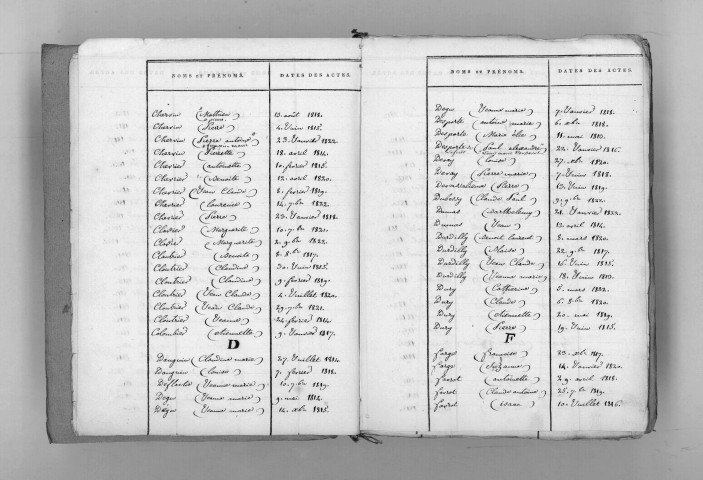 NOMS ET PRÉNOMS. DATES DES ACTES.
Chervin (Mathieu) 13. août 1818.
Chervin (Pierre) 4. Juin 1813.
Chervin (Pierre antoine) 23. Janvier 1822
Chervin (Pierrette) 18. avril 1814.
Chevrier (antoinette) 10. février 1818.
Chevrier (Benoite) 12. avril 1820.
Chevrier (Jean Claude) 8. février 1819.
Chevrier (Laurence) 14. 7.bre 1822.
Chevrier (Pierre) 23. Janvier 1818.
Clodier (Marguerite) 10. 7.bre 1821.
Clodier (Marguerite) 2. 9.bre 1822.
Cloutrier (Benoite) 8. 8.bre 1817.
Cloutrier (Claudine) 30. Juin 1813.
Cloutrier (Claudine) 9. février 1819.
Cloutrier (Jean Claude) 4. Juillet 1820.
Cloutrier (Jean Claude) 29. 7.bre 1821.
Cloutrier (Jeanne) 24. février 1814.
Colombier (etiennette) 9. Janvier 1817.
D
Dauguin (Claudine marie) 27. Juillet 1814.
Dauguin (Louise) 7. février 1818.
(Jeanne marie) 10. 7.bre 1819.
Degu (Jeanne marie) 9. mai 1814.
Degu (Jeanne marie) 14. xbre 1815.
NOMS ET PRÉNOMS. DATES DES ACTES.
Degu (Jeanne marie) 7. Janvier 1818.
Desporte (antoine marie) 6. xbre 1818.
Desporte (Marie) 11. mai 1810.
Desportes (Paul alexandre) 22. Janvier 1816.
Devay (Louise) 27. xbre 1820.
Devay (Pierre marie) 7. Juin 1818.
(Pierre) 13. Juin 1819.
(Claude Paul) 9. 9.bre 1822.
Dumas (Barthelemy) 24. Janvier 1822.
Dumas (Jean) 12. avril 1814.
Durdilly (Benoit Laurent) 8. mars 1820.
Durdilly (Blaise) 22. 9.bre 1817.
Durdilly (Jean Claude) 16. Juin 1813.
Durdilly (Jeanne marie) 18. Juin 1810.
Dury (Catherine) 5. mars 1822.
Dury (Claude) 6. 8.bre 1820.
Dury (etiennette) 20. mai 1819.
Dury (Pierre) 19. Juin 1813.
F
Farge (françoise) 23. xbre 1817.
Farge (Suzanne) 14. Janvier 1820.
Favrot (antoinette) 29. avril 1818.
Favrot (Claude antoine) 25. 7.bre 1819.
Favrot 10. Juillet 1816.